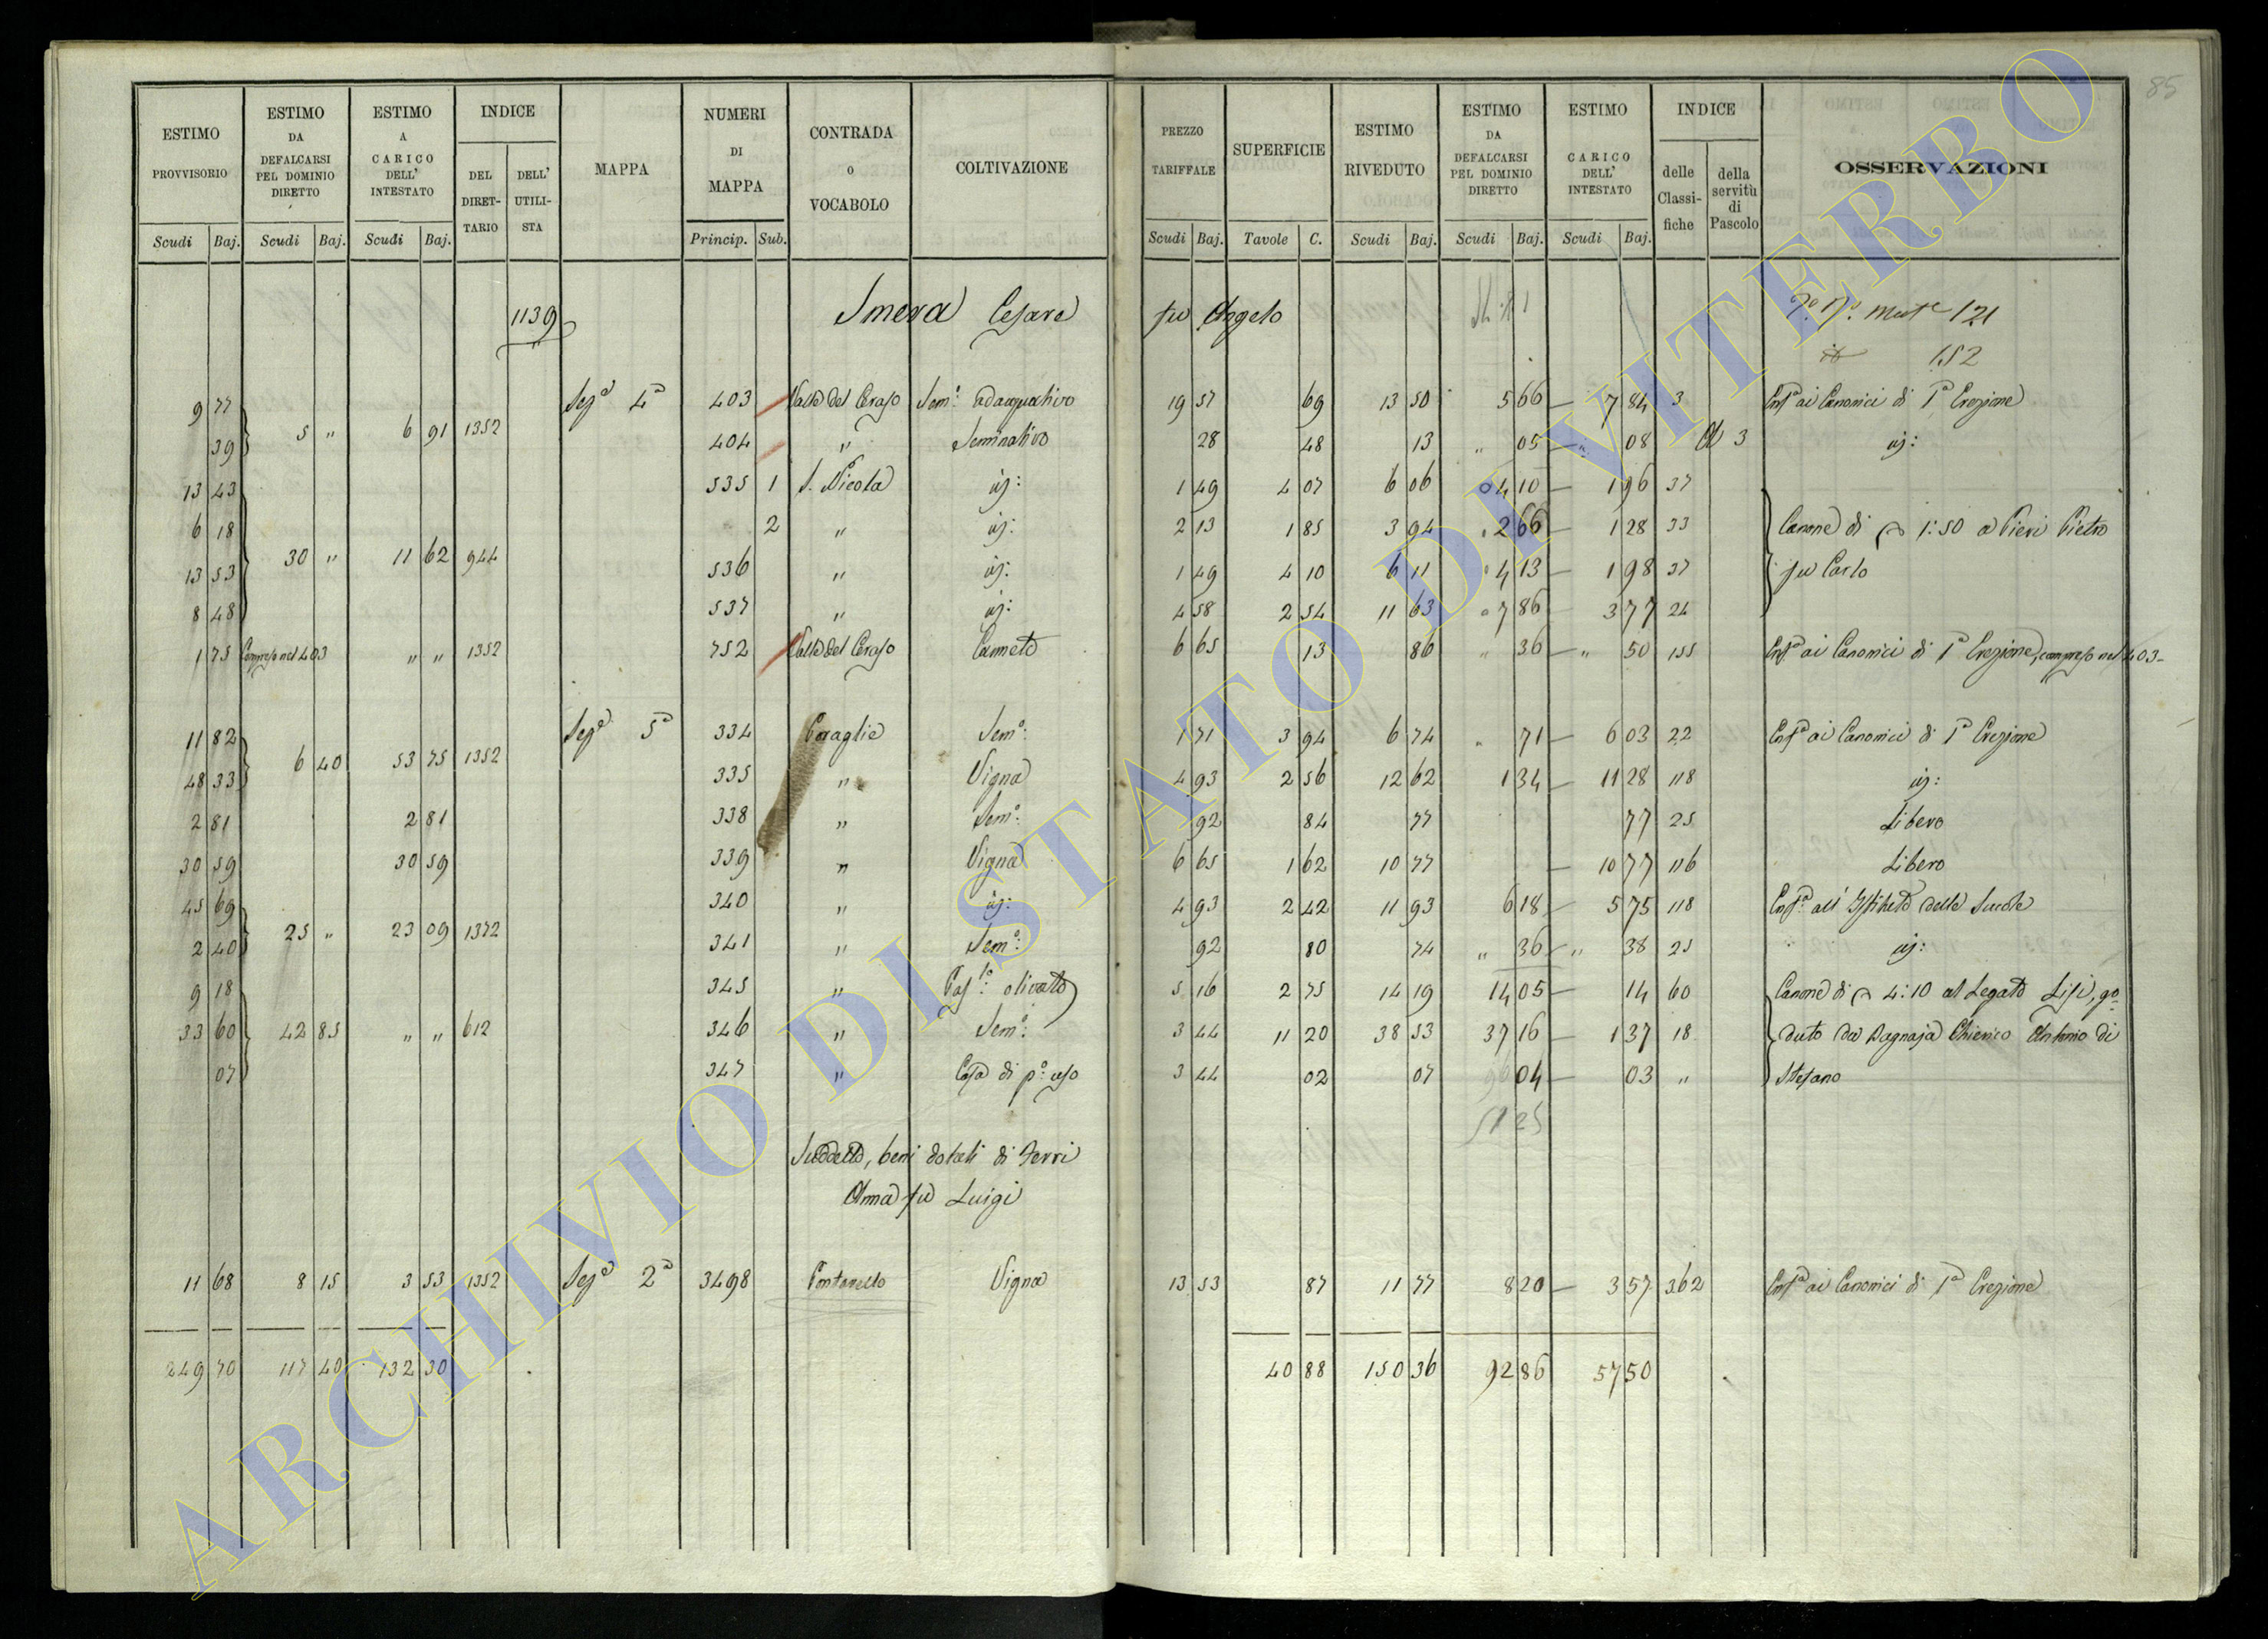 85
ESTIMO PROVVISORIO
ESTIMO DA DEFALCARSI PEL DOMINIO DIRETTO
ESTIMO A CARICO DELL' INTESTATO
INDICE
DEL DIRETTARIO
DELL' UTILISTA
MAPPA
NUMERI DI MAPPA
CONTRADA O VOCABOLO
COLTIVAZIONE
PREZZO TARIFFALE
SUPERFICIE
ESTIMO RIVEDUTO
ESTIMO DA DEFALCARSI PEL DOMINIO DIRETTO
ESTIMO A CARICO DELL' INTESTATO
INDICE
delle Classifiche
della servitù di Pascolo
OSSERVAZIONI
Scudi Baj. Scudi Baj. Scudi Baj. Princip. Sub. Scudi Baj. Tavole C. Scudi Baj. Scudi Baj. Scudi Baj.
1139 Cesare fu Angelo 121
152
9 77 Sez.e 4a 403 Valle del Ceraso Sem.o adacquativo 19 57 69 13 50 5 66 7 84 3 Enf.a ai Canonici di 1a Erezione
5 " 6 91 1352
39 404 " Seminativo 28 48 13 " 05 " 08 3 id:
13 43 535 1 S. Nicola id: 1 49 4 07 6 06 4 10 1 96 37
6 18 2 " id: 2 13 1 85 3 94 2 66 1 28 33 Canone di 1:50 a Pieri Pietro
30 " 11 62 944
13 53 536 " id: 1 49 4 10 6 11 4 13 1 98 37 fu Carlo
8 48 537 " id: 4 58 2 54 11 63 7 86 3 77 24
1 75 Compreso nel 403 " " 1352 752 Valle del Ceraso Canneto 6 65 13 86 " 36 " 50 155 Enf.a ai Canonici di 1a Erezione, compreso nel 403
11 82 Sez.e 5a 334 Sem.o 1 71 3 94 6 74 " 71 6 03 22 Enf.a ai Canonici di 1a Erezione
6 40 53 75 1352
48 33 335 " Vigna 4 93 2 56 12 62 1 34 11 28 118 id:
2 81 2 81 338 " Sem.o 92 84 77 77 25 Libero
30 59 30 59 339 " Vigna 6 65 1 62 10 77 10 77 116 Libero
45 69 340 " id: 4 93 2 42 11 93 6 18 5 75 118 Enf.a all' Istituto delle Scuole
25 " 23 09 1372
2 40 341 " Sem.o 92 80 74 " 36 " 38 25 id:
9 18 345 " Pas.lo olivato 5 16 2 75 14 19 14 05 14 60 Canone di 4:10 al Legato Lisi, go-
33 60 42 85 " " 612 346 " Sem.o 3 44 11 20 38 53 37 16 1 37 18 duto da Bagnaja Chierico Antonio di
07 347 " Casa di p.o uso 3 44 02 07 04 03 " Stefano
51 25
Suddetto, beni dotali di Ferri
Anna fu Luigi
11 68 8 15 3 53 1352 Sez.e 2a 3498 Pontarello Vigna 13 53 87 11 77 8 20 3 57 362 Enf.a ai Canonici di 1a Erezione
249 70 117 40 132 30 40 88 150 36 92 86 57 50
ARCHIVIO DI STATO DI VITERBO